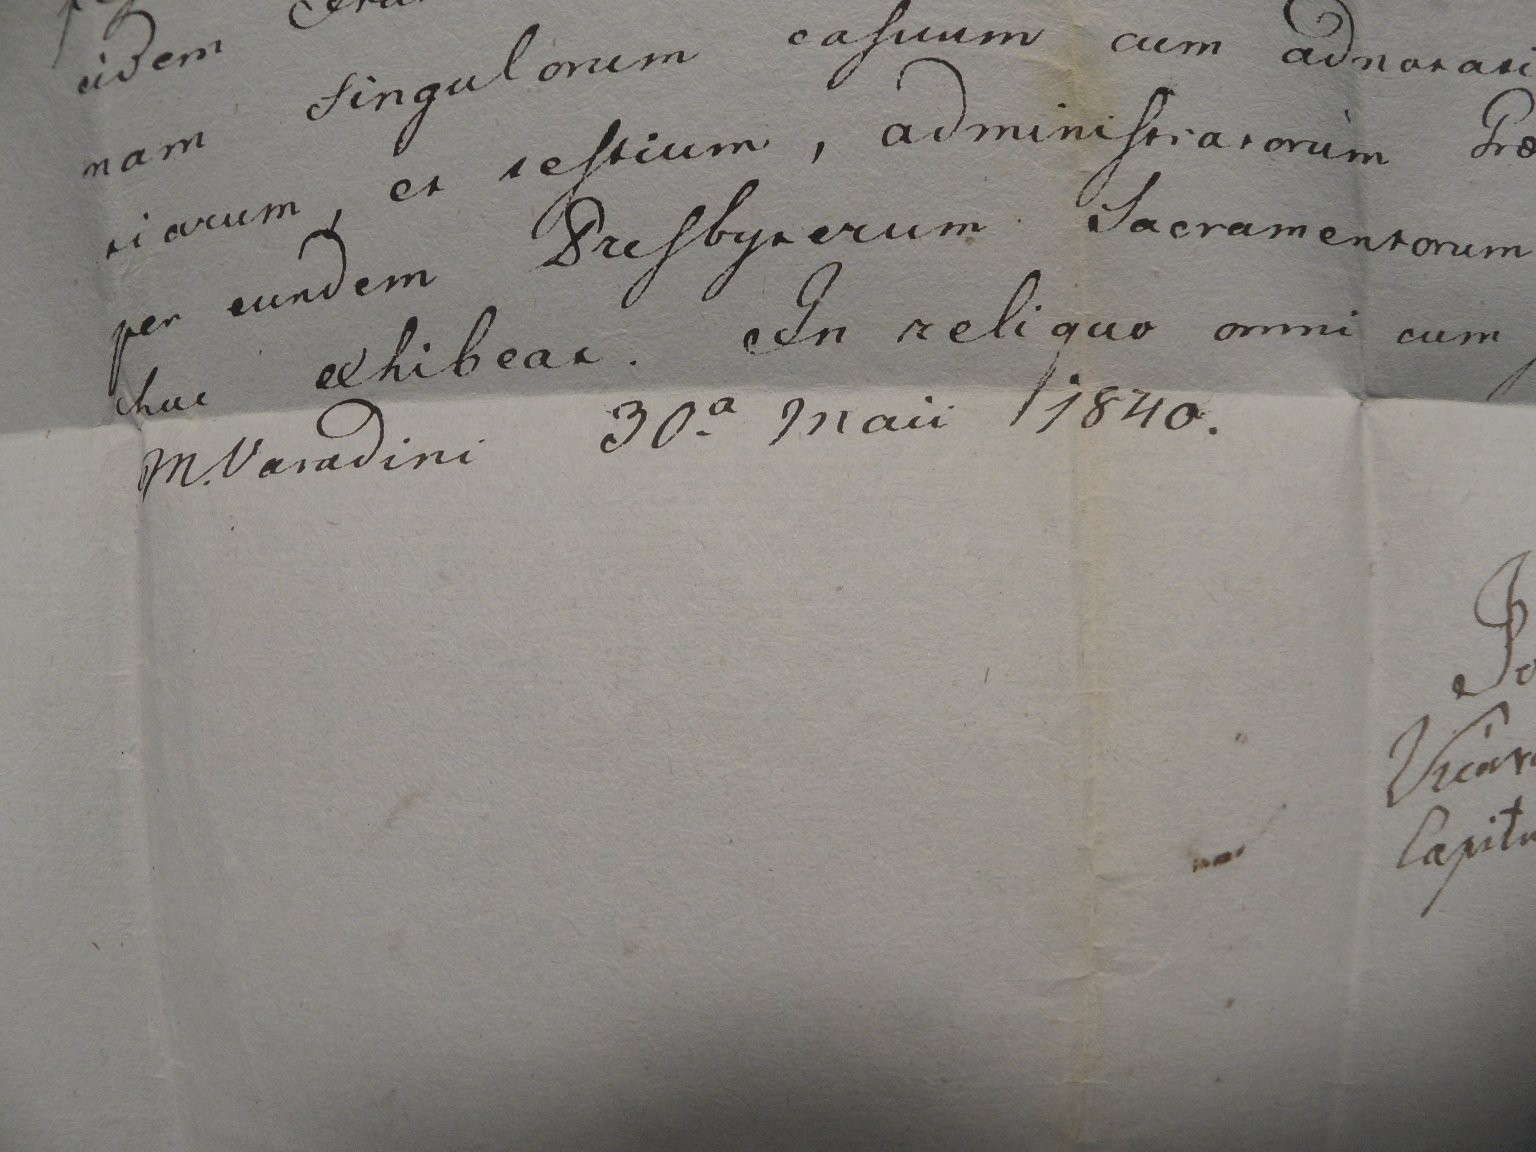 eidem
nam singulorum casuum cum adnotati
tiarum, et testium, administratorum Præ
per eundem Presbyterum Sacramentorum
huc exhibeat. In reliquo omni cum
M. Varadini 30.a Maii 1840.
Jo
Vicari
Capitu